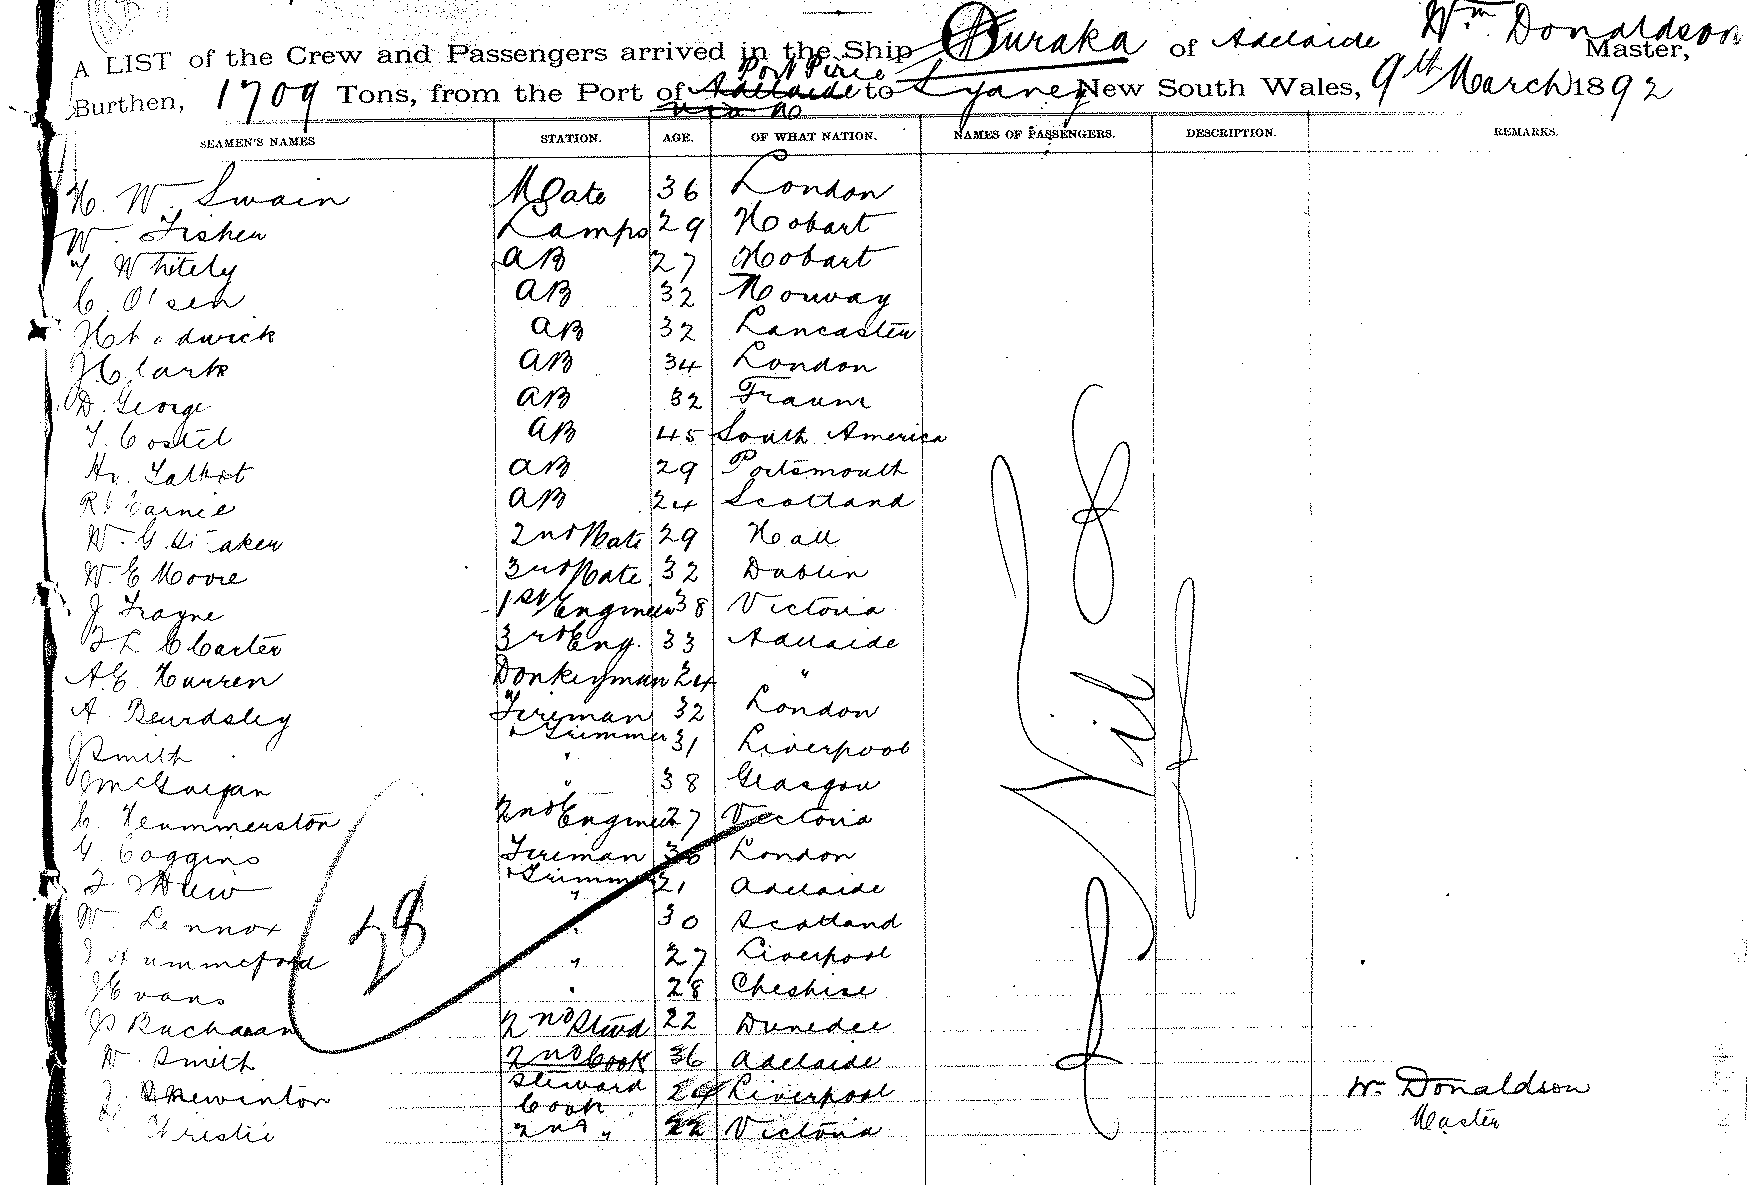 A LIST of the Crew and Passengers arrived in the Ship Ouraka of Adelaide Wm Donaldson Master,
Burthen, 1709 Tons, from the Port of Port Pirie Adelaide to Sydney New South Wales, 9th March 1892
SEAMEN'S NAMES STATION. AGE. OF WHAT NATION. NAMES OF PASSENGERS. DESCRIPTION. REMARKS.
H. W. Swain Mate 36 London
W. Fisher Lamps 29 Hobart
Whitely AB 27 Hobart
C. Olsen AB 32 Norway
AB 32 Lancaster
J Clark AB 34 London
D. George AB 32
T. Costel AB 45 South America
Hy. Talbot AB 29 Portsmouth
AB 24 Scotland
W. G. 2nd Mate 29 Hall
W. E Moore 3rd Mate 32 Dublin
J Trayne 1st Engineer 38 Victoria
Carter 3rd Eng. 33 Adelaide
A.E. Warren Donkeyman 24 "
A. Beardsley Fireman 32 London
J Smith & Trimmer 31 Liverpool
" 38 Glasgow
C. 2nd Engineer 27 Victoria
G. Coggins Fireman 30 London
& Trimmer " 21 Adelaide
W. Lennox " 30 Scotland
" 27 Liverpool
J Evans " 28 Cheshire
J Buchanan 2nd Stwd 22 Dunedee
W. Smith 2nd Cook 36 Adelaide
Skewinton Steward Cook Liverpool
2nd " 22 Victoria
28
Nil
Wm Donaldson
Master